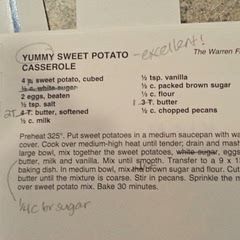 YUMMY SWEET POTATO - excellent!
The Warren F
CASSEROLE
4 sweet potato, cubed
½ tsp. vanilla
½ c. white sugar
½ c. packed brown sugar
2 eggs, beaten
⅓ c. flour
½ tsp. salt
3 T. butter
2T 4 T. butter, softened
½ c. chopped pecans
½ c. milk
Preheat 325°. Put sweet potatoes in a medium saucepan with wa
cover. Cook over medium-high heat until tender; drain and mash
large bowl, mix together the sweet potatoes, white sugar, eggs
butter, milk and vanilla. Mix until smooth. Transfer to a 9 x 1
baking dish. In medium bowl, mix the brown sugar and flour. Cut
butter until the mixture is coarse. Stir in pecans. Sprinkle the m
over sweet potato mix. Bake 30 minutes.
¼ c br sugar